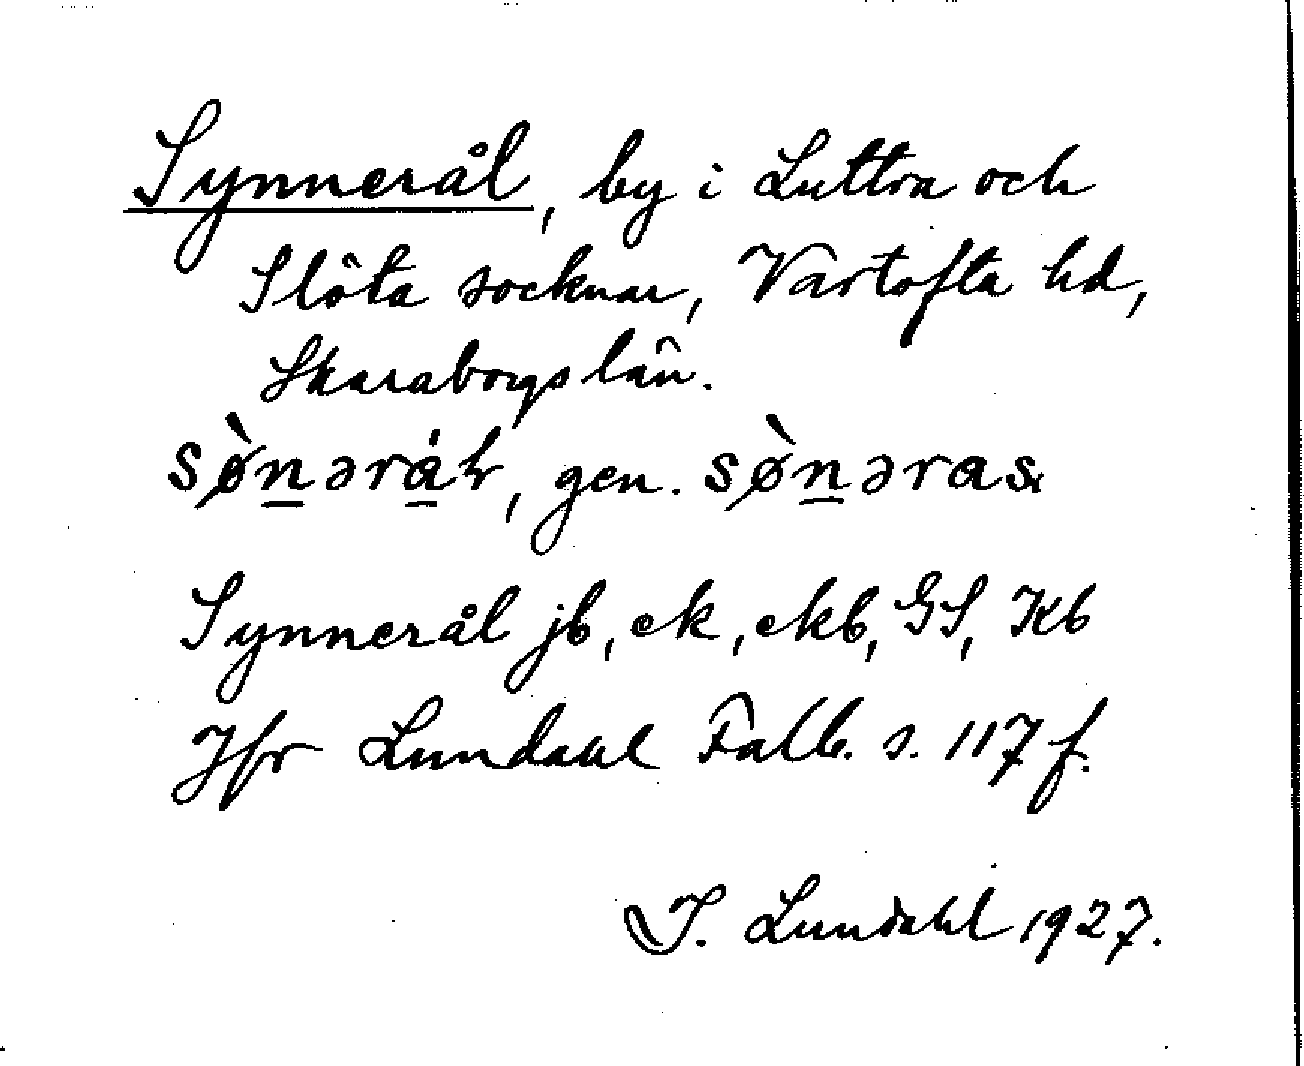 Synnerål, by i Luttra och
Slöta socknar, Vartofta hd,
Skaraborgs län.
sø̀n̲ərá̲ɫ, gen. sø̀n̲əras
Synnerål jb, ek, ekb, GS, Kb
Jfr Lundahl Falb. s. 117 f.
I. Lundahl 1927.